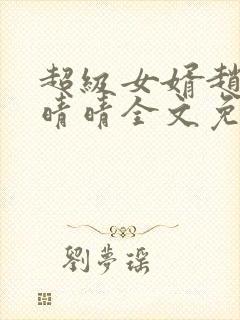 超級女婿趙
晴晴全文免
劉夢瑶